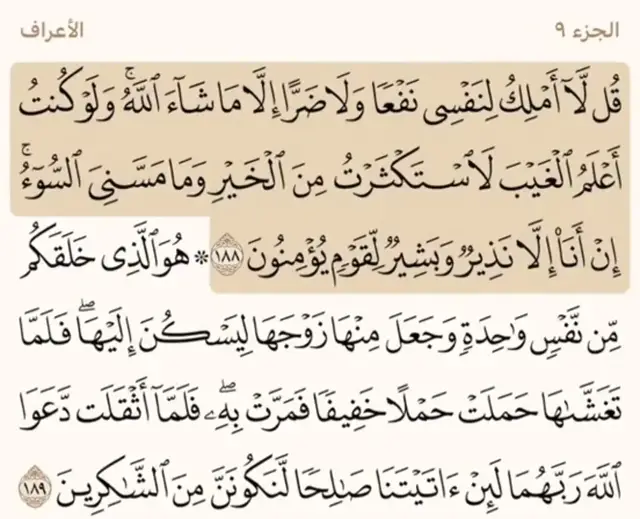 الجزء ٩ الأعراف
قُل لَّآ أَمۡلِكُ لِنَفۡسِي نَفۡعٗا وَلَا ضَرًّا إِلَّا مَا شَآءَ ٱللَّهُۚ وَلَوۡ كُنتُ
أَعۡلَمُ ٱلۡغَيۡبَ لَٱسۡتَكۡثَرۡتُ مِنَ ٱلۡخَيۡرِ وَمَا مَسَّنِيَ ٱلسُّوٓءُۚ
إِنۡ أَنَا۠ إِلَّا نَذِيرٞ وَبَشِيرٞ لِّقَوۡمٖ يُؤۡمِنُونَ ١٨٨ * هُوَ ٱلَّذِي خَلَقَكُم
مِّن نَّفۡسٖ وَٰحِدَةٖ وَجَعَلَ مِنۡهَا زَوۡجَهَا لِيَسۡكُنَ إِلَيۡهَاۖ فَلَمَّا
تَغَشَّىٰهَا حَمَلَتۡ حَمۡلًا خَفِيفٗا فَمَرَّتۡ بِهِۦۖ فَلَمَّآ أَثۡقَلَت دَّعَوَا
ٱللَّهَ رَبَّهُمَا لَئِنۡ ءَاتَيۡتَنَا صَٰلِحٗا لَّنَكُونَنَّ مِنَ ٱلشَّٰكِرِينَ ١٨٩